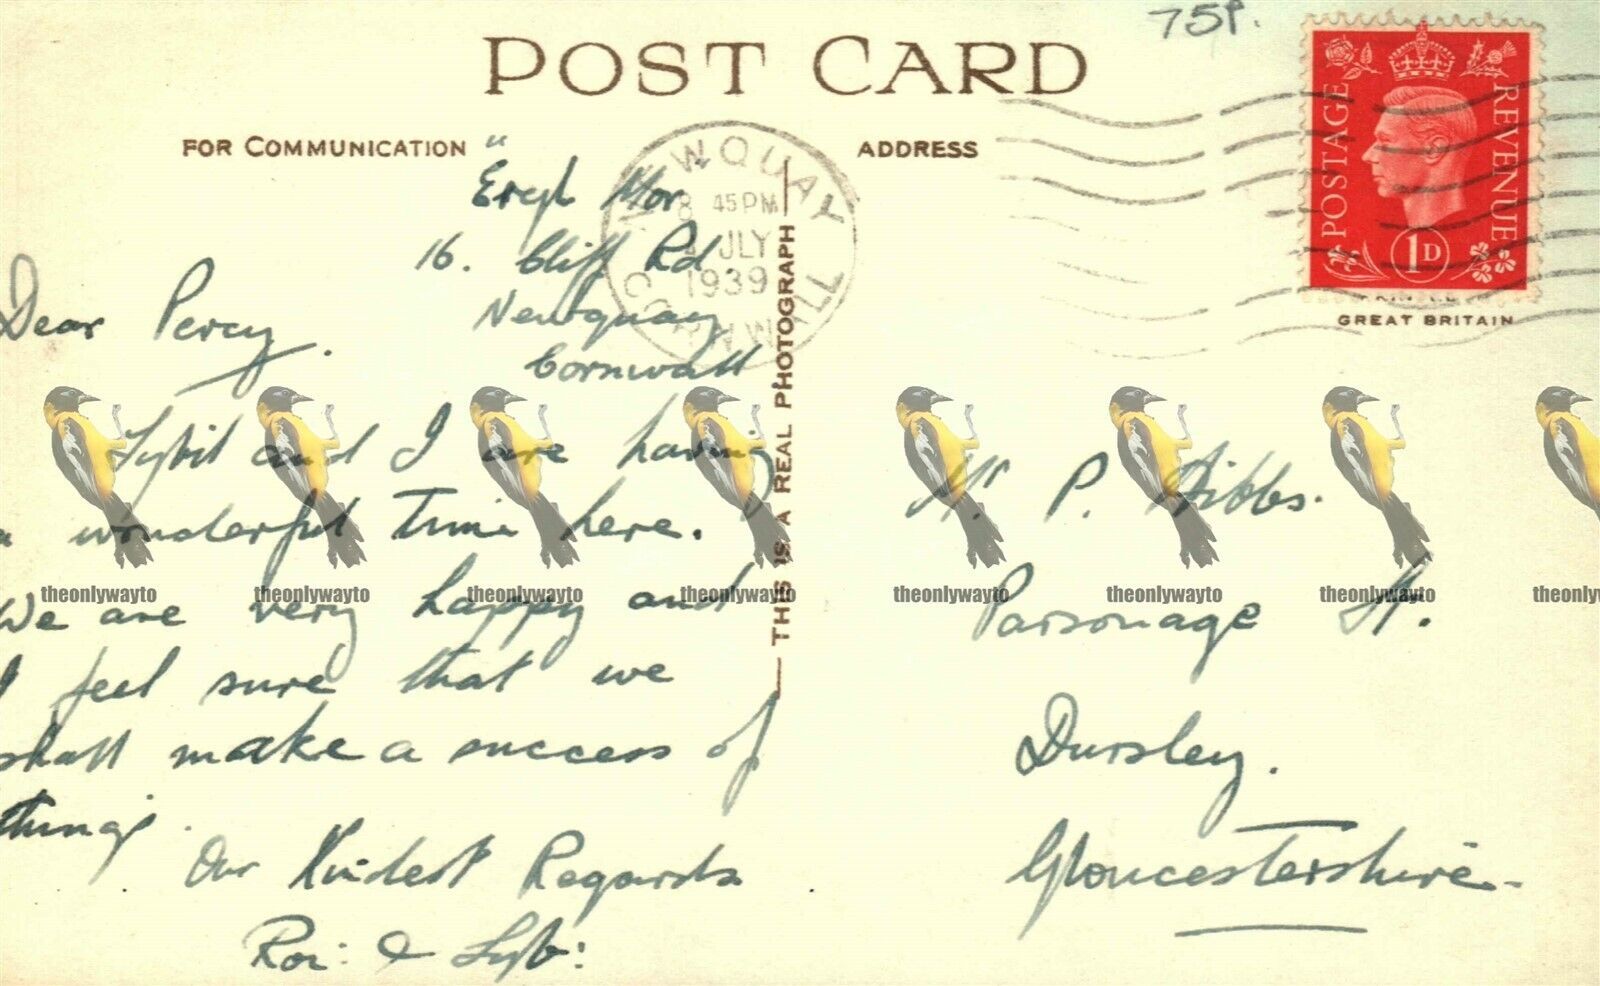 75P.
POST CARD
FOR COMMUNICATION
ADDRESS
NEWQUAY
8 45 PM
JLY
1939
CORNWALL
POSTAGE
REVENUE
1D
GREAT BRITAIN
THIS IS A REAL PHOTOGRAPH
Mor
16. Cliff Rd
Newquay
Cornwall
Dear Percy.
Sybil and I are having
a wonderful time here.
We are very happy and
I feel sure that we
shall make a success of
things.
Our Kindest Regards
Roi: & Syb:
Mr. P. Hibbs.
Parsonage St.
Dursley.
Gloucestershire-
theonlywayto theonlywayto theonlywayto theonlywayto theonlywayto theonlywayto theonlywayto theonlywayto